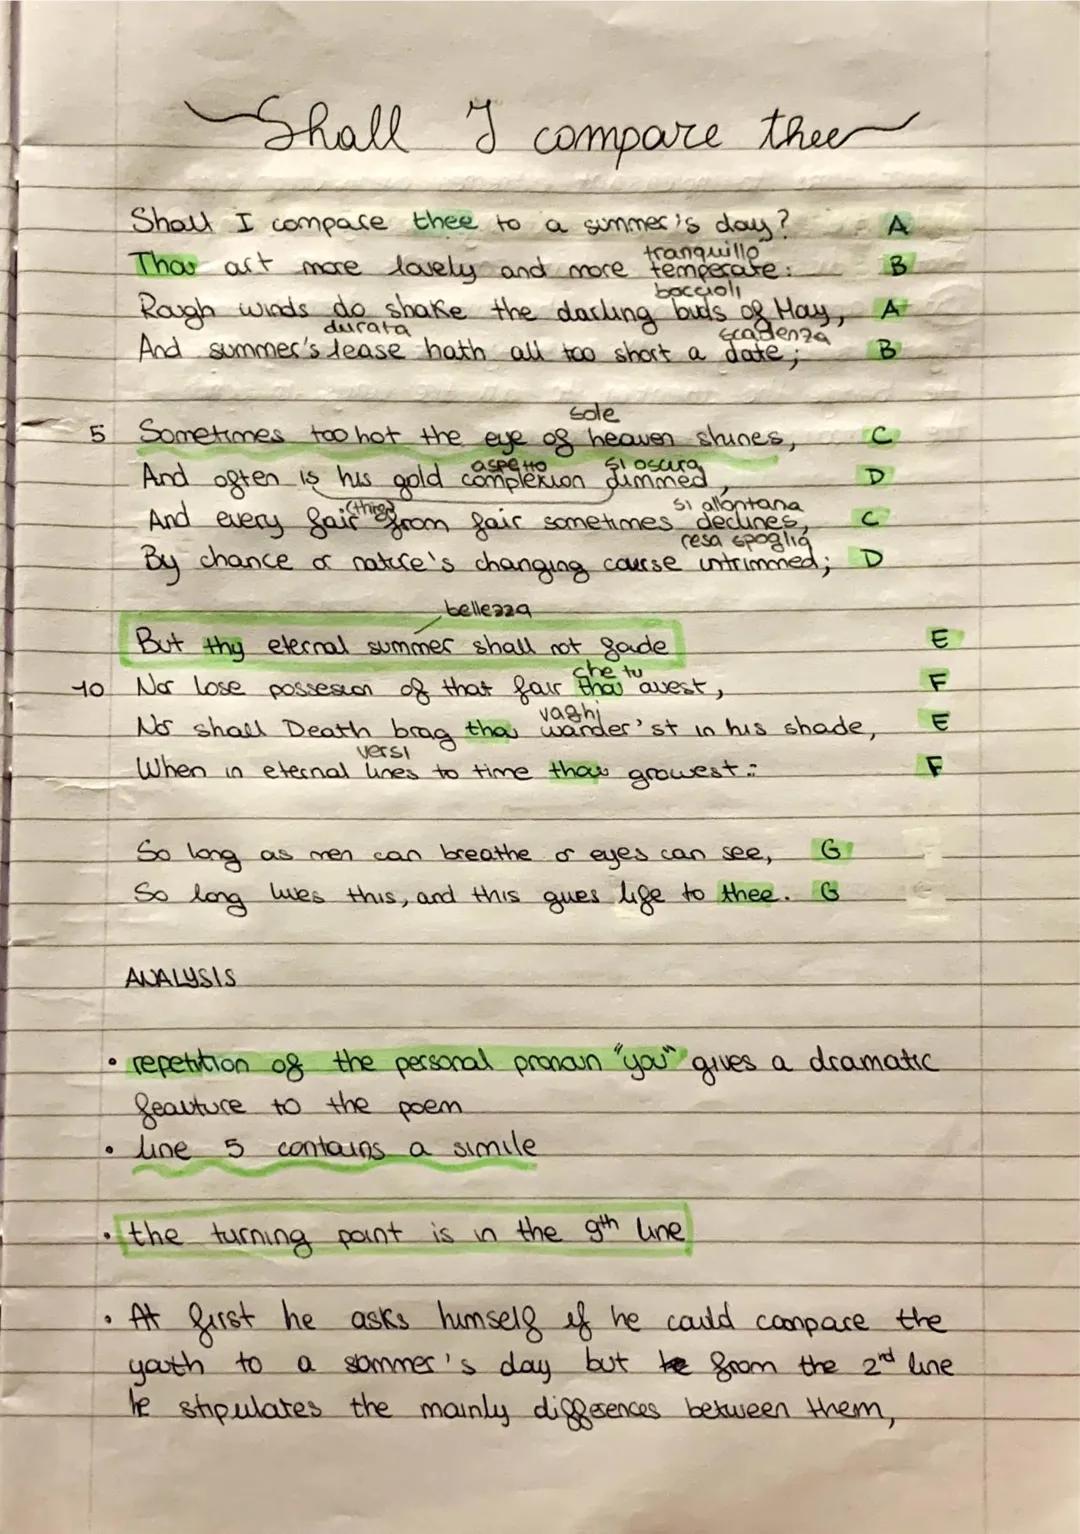 Shall I compare thee
Shall I compare thee to a summer's day? A
tranquillo
Thou art more lovely and more temperate: B
boccioli
Rough winds do shake the darling buds of May, A
durata scadenza
And summer's lease hath all too short a date; B
sole
5 Sometimes too hot the eye of heaven shines, C
aspetto si oscura
And often is his gold complexion dimmed, D
(thing) si allontana
And every fair from fair sometimes declines, C
resa spoglia
By chance or nature's changing course untrimmed; D
bellezza
But thy eternal summer shall not fade E
che tu
10 Nor lose possesion of that fair thou owest, F
vaghi
Nor shall Death brag thou wander'st in his shade, E
versi
When in eternal lines to time thou growest: F
So long as men can breathe or eyes can see, G
So long lives this, and this gives life to thee. G
ANALYSIS
• repetition of the personal pronoun "you" gives a dramatic
feauture to the poem
• line 5 contains a simile
• the turning point is in the 9th line
• At first he asks himself if he could compare the
youth to a sommer's day but from the 2nd line
he stipulates the mainly differences between them,